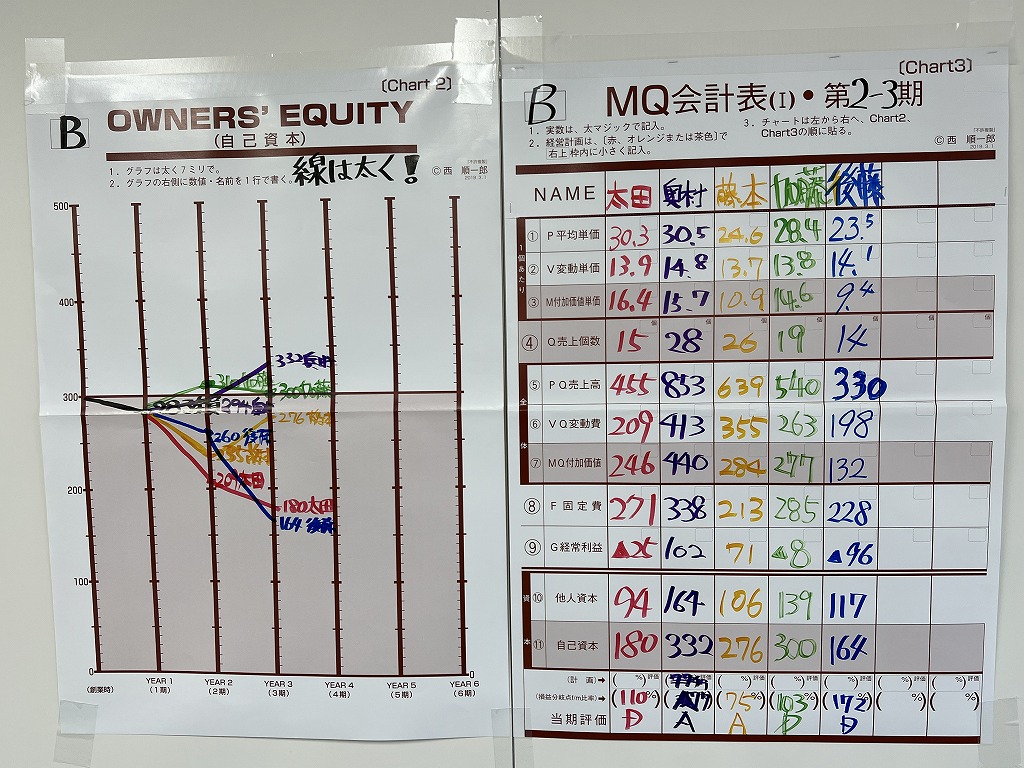 〔Chart 2〕
B
OWNERS' EQUITY
(自己資本)
1. グラフは太く7ミリで。
2. グラフの右側に数値・名前を1行で書く。
線は太く!
〔不許複製〕
© 西 順一郎
2019.3.1
500
400
300
200
100
0
0
332 奥村
300 加藤
294
276 藤本
260 後藤
180 太田
164 後藤
(創業時)
YEAR 1
(1期)
YEAR 2
(2期)
YEAR 3
(3期)
YEAR 4
(4期)
YEAR 5
(5期)
YEAR 6
(6期)
〔Chart3〕
B
MQ会計表(I)・第2-3期
1. 実数は、太マジックで記入。
2. 経営計画は、(赤、オレンジまたは茶色)で
右上枠内に小さく記入。
3. チャートは左から右へ、Chart2、
Chart3の順に貼る。
〔不許複製〕
© 西 順一郎
2019.3.1
NAME 太田 奥村 藤本 加藤 後藤
1個あたり
① P平均単価 30.3 30.5 24.6 28.4 23.5
② V変動単価 13.9 14.8 13.7 13.8 14.1
③ M付加価値単価 16.4 15.7 10.9 14.6 9.4
個 個 個 個 個 個 個
④ Q売上個数 15 28 26 19 14
全体
⑤ PQ売上高 455 853 639 540 330
⑥ VQ変動費 209 413 355 263 198
⑦ MQ付加価値 246 440 284 277 132
⑧ F固定費 271 338 213 285 228
⑨ G経常利益 ▲25 102 71 ▲8 ▲96
資本
⑩ 他人資本 94 164 106 139 117
⑪ 自己資本 180 332 276 300 164
(計画)➡ ( %)評価 ( %)評価 ( %)評価 ( %)評価 ( %)評価 ( %)評価
(損益分岐点f/m比率)➡ (110%) (75%) (103%) (172%) ( %) ( %)
当期評価 D A A D D